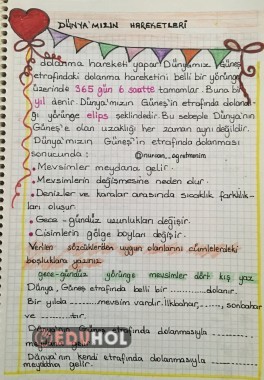 DÜNYA'MIZIN HAREKETLERİ
dolanma hareketi yapar. Dünyamız Güneş
etrafındaki dolanma hareketini belli bir yörünge
üzerinde 365 gün 6 saatte tamamlar. Buna bir
yıl denir. Dünya'mızın Güneş'in etrafında dolandı-
ğı yörünge elips şeklindedir. Bu sebeple Dünya'nın
Güneş'e olan uzaklığı her zaman aynı değildir.
Dünya'mızın Güneş'in etrafında dolanması
sonucunda : @nurcan_ogretmenim
• Mevsimler meydana gelir.
• Mevsimlerin değişmesine neden olur.
• Denizler ve karalar arasında sıcaklık farklılık-
ları oluşur.
• Gece - gündüz uzunlukları değişir.
• Cisimlerin gölge boyları değişir.
Verilen sözcüklerden uygun olanlarını cümlelerdeki
boşluklara yazınız
gece-gündüz yörünge mevsimler dört kış yaz
Dünya, Güneş etrafında belli bir ............dolanır.
Bir yılda ............mevsim vardır. İlkbahar,........, sonbahar
ve ............tır.
Dünya'nın Güneş etrafında dolanmasıyla ............
meydana gelir.
Dünya'nın kendi etrafında dolanmasıyla ............
meydana gelir.
EDUHOL